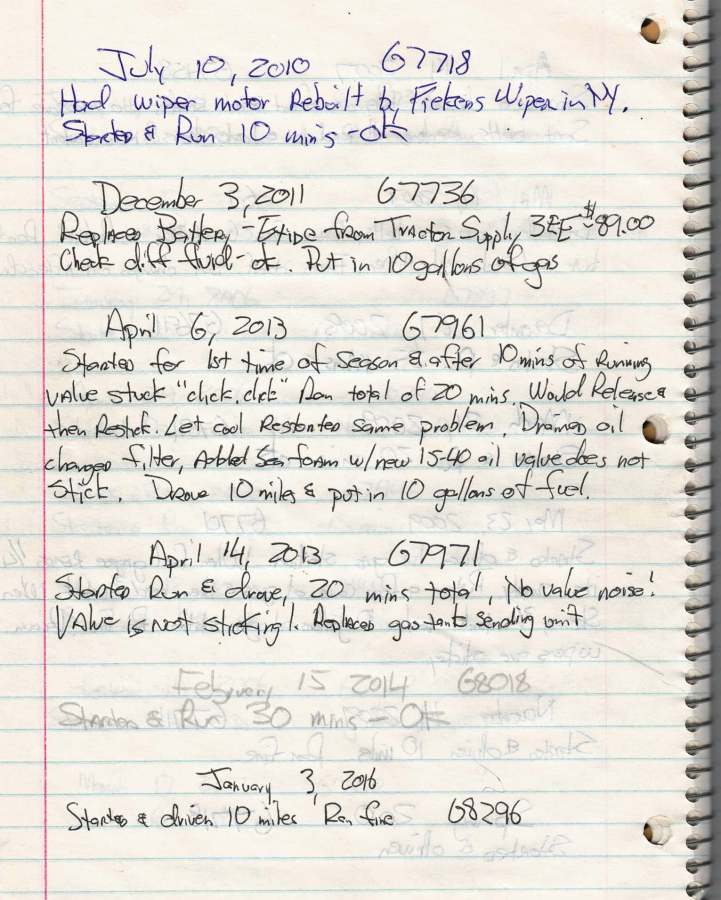 July 10, 2010 67718
Had wiper motor Rebuilt by Fickens Wiper in NY.
Started & Run 10 mins - OK
December 3, 2011 67736
Replaced Battery - Exide from Tractor Supply 3EE - $89.00
Check diff fluid - ok. Put in 10 gallons of gas
April 6, 2013 67961
Started for 1st time of Season & after 10 mins of Running
value stuck "click, click" Ran total of 20 mins. Would Release &
then Restick. Let cool Restarted same problem. Drained oil
changed filter, Added Sea foam w/new 15-40 oil value does not
Stick. Drove 10 miles & put in 10 gallons of fuel.
April 14, 2013 67971
Started Run & drove, 20 mins total, No value noise!
Value is not sticking!. Replaced gas tank Sending unit
February 15 2014 68018
Started & Run 30 mins - OK
January 3, 2016
Started & driven 10 miles Ran fine 68296